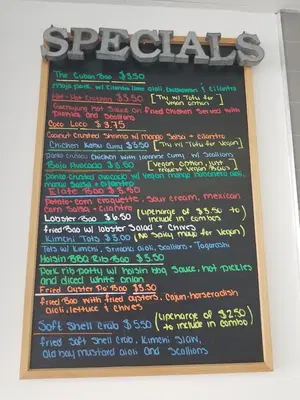 SPECIALS
The Cuban Bao $3.50
Mojo pork w/ Cilantro lime aioli, & cilantro
Hot-Hot Chicken $3.50 [Try w/ Tofu for Vegan option]
Gochujang Hot Sauce on fried Chicken Served with
Pickles and Scallions
Coco Loco $3.75
Coconut Crusted Shrimp w/ mango Salsa + cilantro
Chicken Katsu Curry $3.50 [Try w/ Tofu for Vegan]
Panko crusted Chicken with Japanese Curry w/ Scallions
Baja Avocado $3.50 [Vegan option, Just request Vegan Bao]
Panko crusted avocado w/ Vegan mango habanero aioli,
mango Salsa + cilantro
Elote Bao $3.50
Potato-corn croquette, Sour cream, mexican
Corn Salsa + Cilantro
Lobster Bao $6.50 (upcharge of $3.50 to include in combo)
fried Bao w/ lobster Salad + Chives
Kimchi Tots $3.00 (No aioli mayo for Vegan)
Tots w/ Kimchi, Sriracha aioli, Scallions + Togarashi
Hoisin BBQ Rib Bao $3.50
Pork rib patty w/ hoisin bbq Sauce, hot pickles
and diced white onion
Fried Oyster Po'Bao $3.50
fried Bao with fried oysters, Cajun-horseradish
aioli, lettuce & chives
Soft Shell Crab $5.50 (Upcharge of $2.50 to include in combo)
fried Soft Shell Crab, Kimchi Slaw,
old bay mustard aioli and Scallions